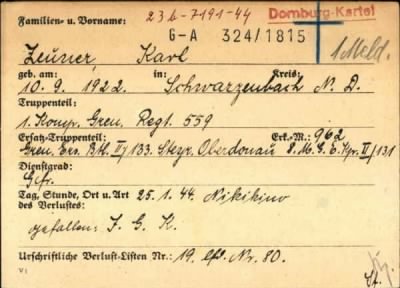 Familien- u. Vorname: 23b-7191-44 Domburg-Kartei
G-A 324/1815
Zeuner, Karl 1 Meld.
geb. am: in: Kreis:
10. 9. 1922. Schwarzenbach N. D.
Truppenteil:
1. Komp. Gren. Regt. 559
Ersatz-Truppenteil: Erk.-M.: 962
Gren. Ers. Btl. II/133 Steyr, Oberdonau 8. M. G. E. Kp. II/131
Dienstgrad:
Gfr.
Tag, Stunde, Ort u. Art 25. 1. 44 Nikikino
des Verlustes:
gefallen: I. G. K.
Urschriftliche Verlust-Listen Nr.: 19. lfs. Nr. 80.
V1